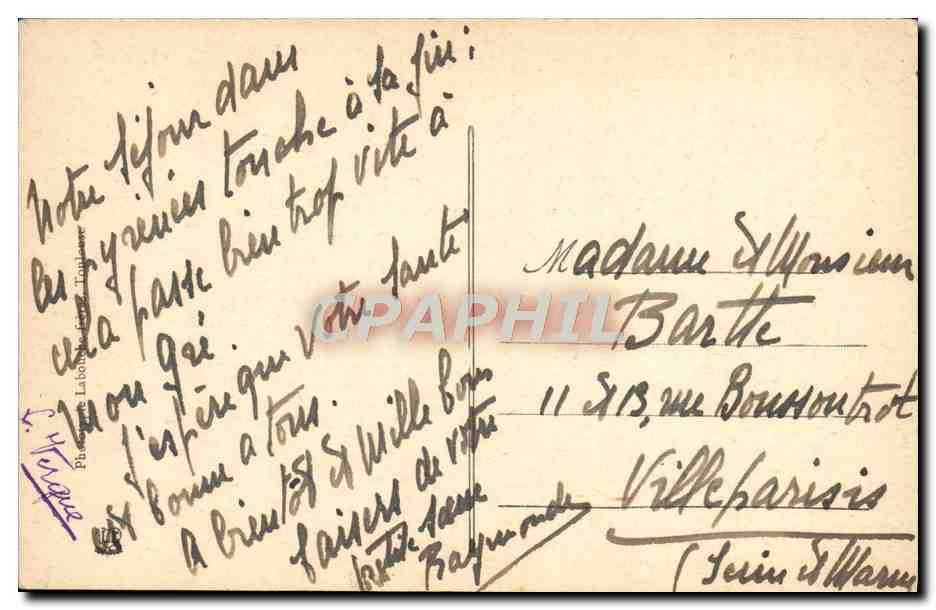 Notre séjour dans
les pyrénées touche à sa fin;
cela passe bien trop vite à
mon gré.
J'espère que votre santé
est bonne a tous.
A bientôt et mille bons
baisers de votre
petite
Raymonde
Madame et Monsieur
Bartte
11 et 13, rue
Villeparisis
(Seine et Marne
CPAPHIL
Toulouse